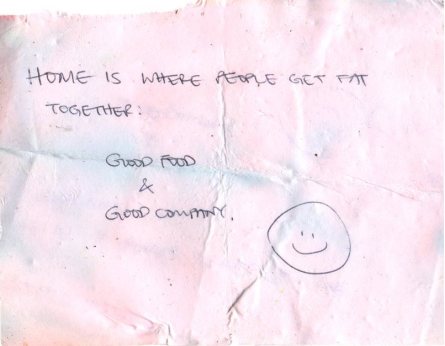 HOME IS WHERE PEOPLE GET FAT
TOGETHER:
GOOD FOOD
&
GOOD COMPANY.